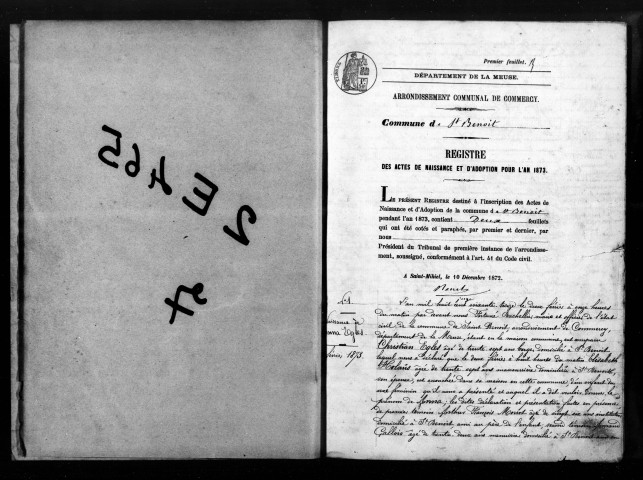 2 E 465
Premier feuillet.
DÉPARTEMENT DE LA MEUSE.
ARRONDISSEMENT COMMUNAL DE COMMERCY.
Commune d e St Benoit
REGISTRE
DES ACTES DE NAISSANCE ET D'ADOPTION POUR L'AN 1873.
LE PRÉSENT REGISTRE destiné à l'inscription des Actes de
Naissance et d'Adoption de la commune d e St Benoit
pendant l'an 1873, contient Deux feuillets
qui ont été cotés et paraphés, par premier et dernier, par
nous
Président du Tribunal de première instance de l'arrondisse-
ment, soussigné, conformément à l'art. 41 du Code civil.
A Saint-Mihiel, le 10 Décembre 1872.
L'an mil huit cent soixante treize le deux février à onze heures
du matin par devant nous maire et officier de l'état
civil de la commune de Saint Benoit, arrondissement de Commercy,
département de la Meuse, étant en la maison commune, est comparu
Christian Egles âgé de trente sept ans domicilié à St Benoit,
lequel nous a déclaré que le deux février à huit heures du matin Elisabeth
âgée de trente sept ans manouvrière domiciliée à St Benoit,
son épouse, est accouchée dans sa maison en cette commune, d'un enfant du
sexe féminin qu'il nous a présenté et auquel il a dit vouloir donner le
prénom de Anna; les dites déclaration et présentation faites en présence
de premier témoin François âgé de vingt six ans instituteur
domicilié à St Benoit, ami au père de l'enfant, second témoin
âgé de trente deux ans manouvrier domicilié à St Benoit